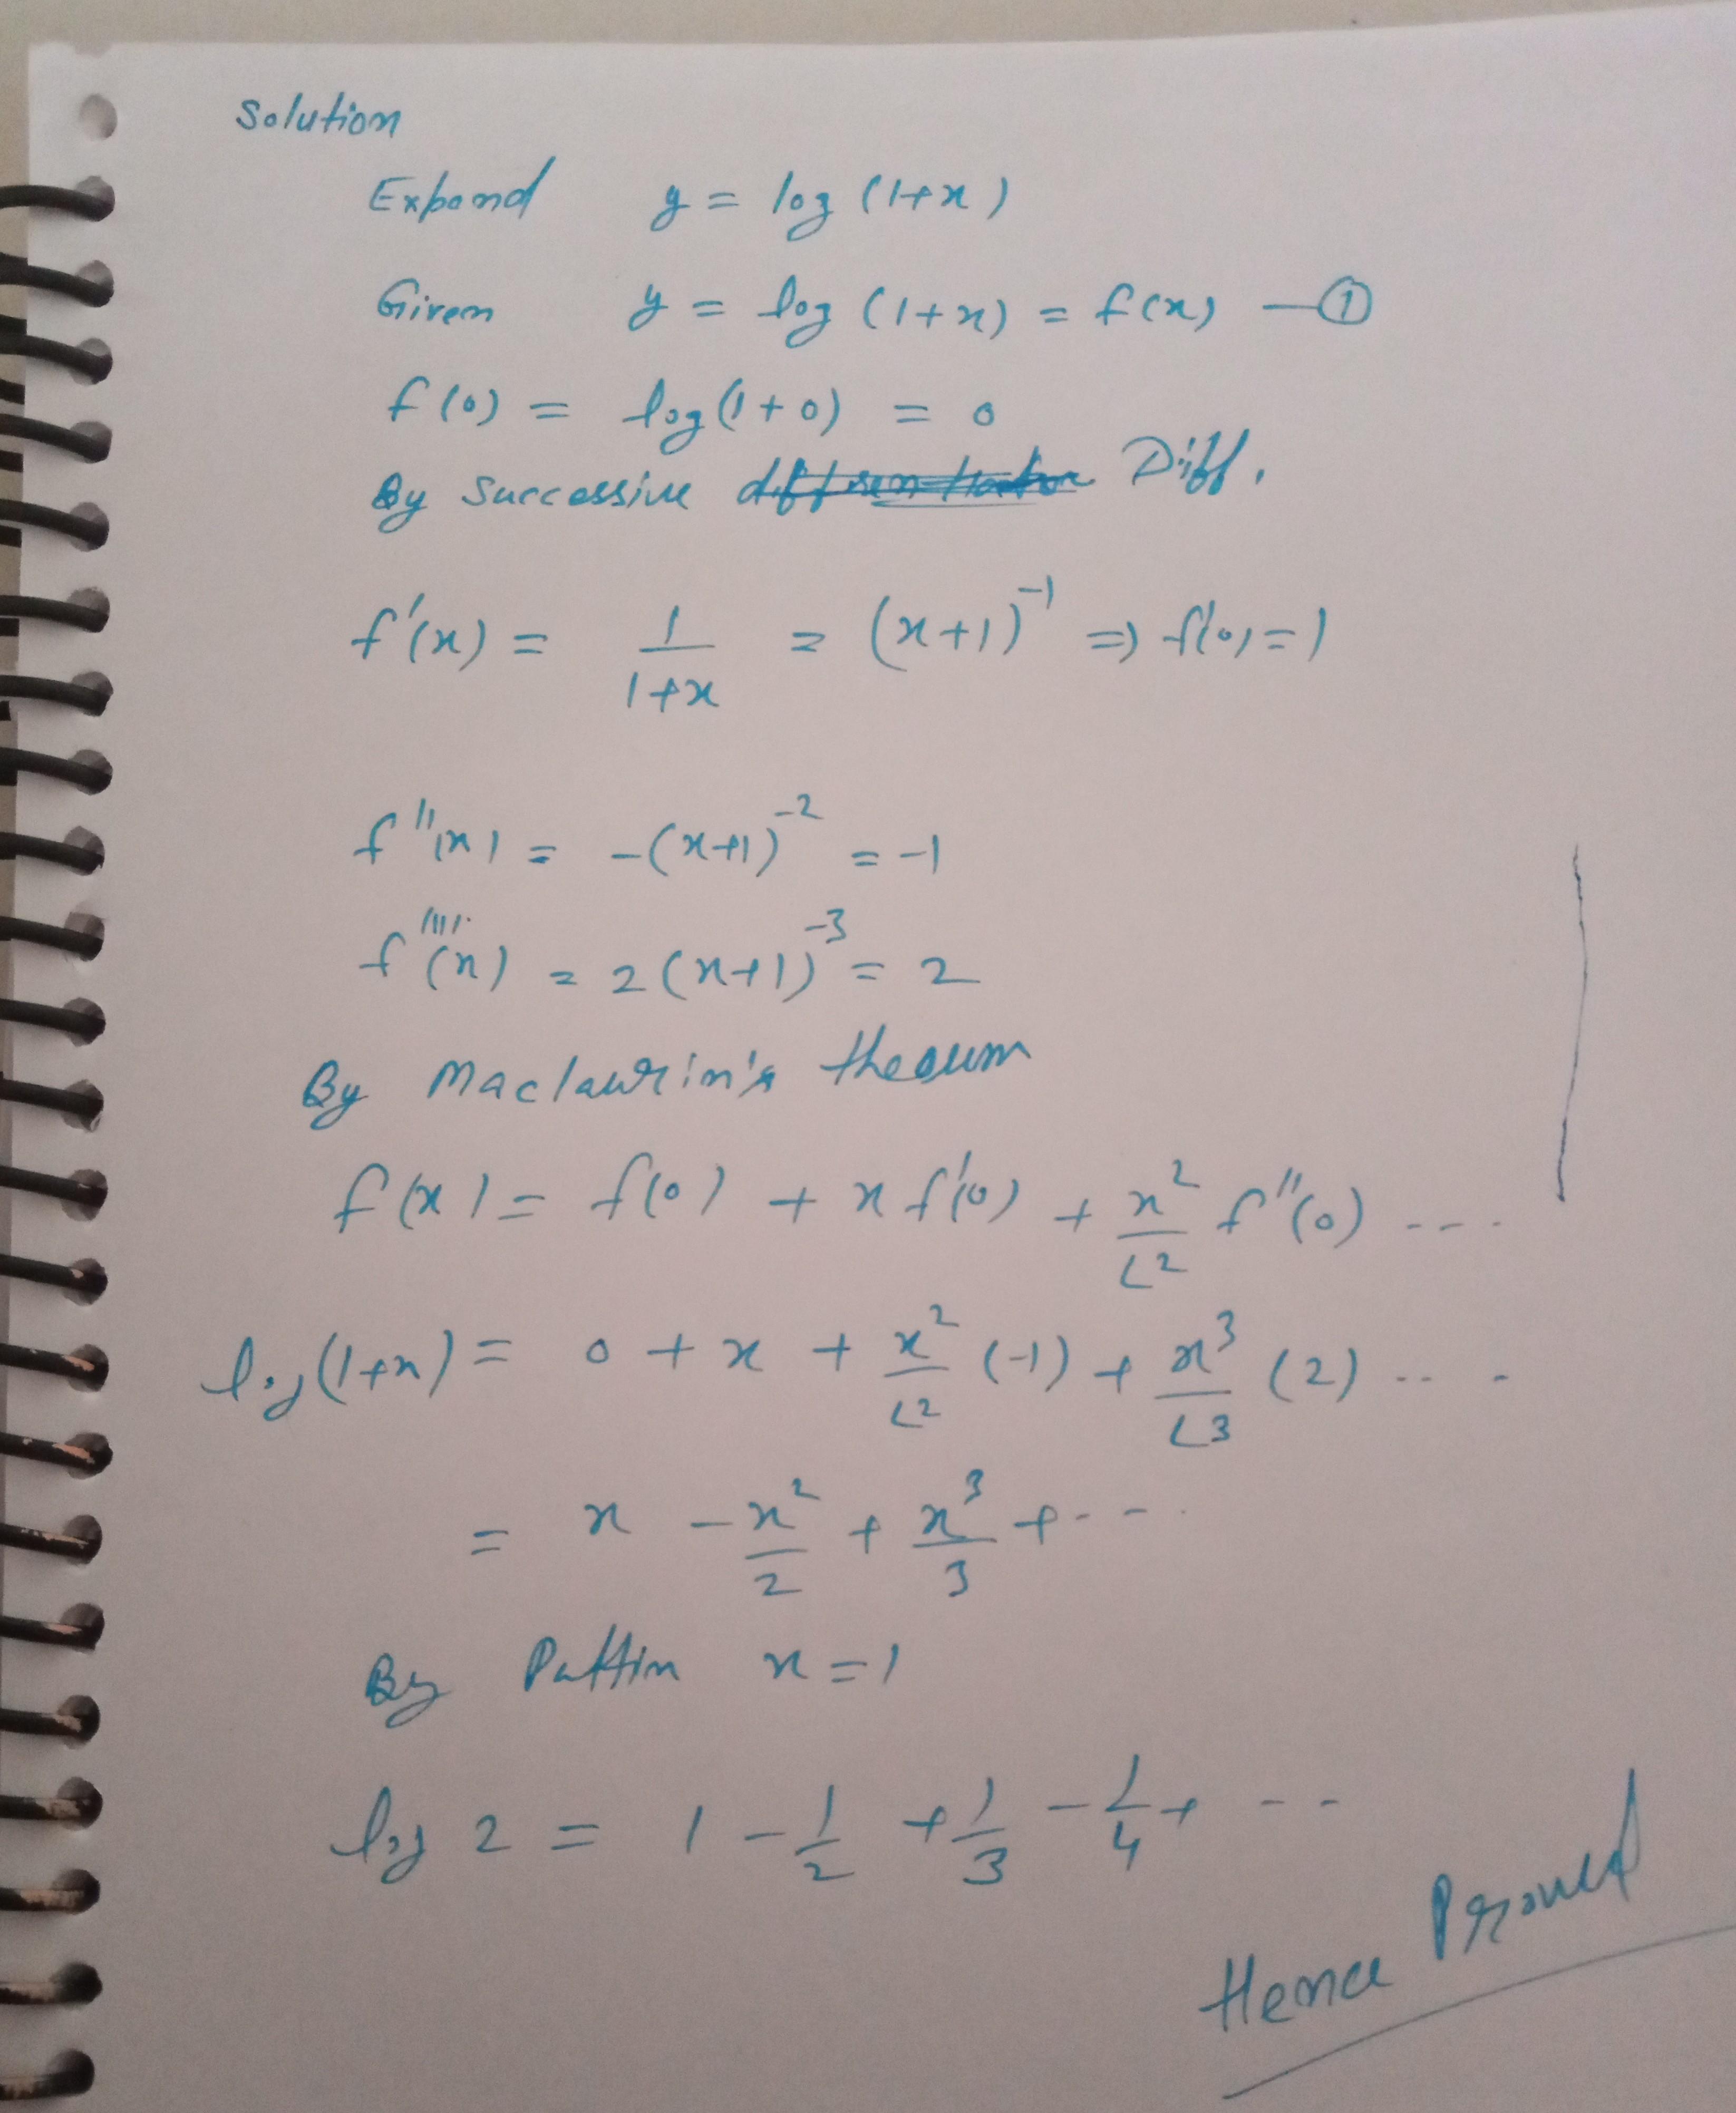 Solution
Expand y = log (1+x)
Given y = log (1+x) = f(x) —①
f(0) = log(1+0) = 0
By Successive Diff.
f'(x) = 1/(1+x) = (x+1)^-1 => f'(0) = 1
f''(x) = -(x+1)^-2 = -1
f''''(x) = 2(x+1)^-3 = 2
By Maclaurin's theorem
f(x) = f(0) + x f'(0) + x^2/∟2 f''(0) ....
log(1+x) = 0 + x + x^2/∟2 (-1) + x^3/∟3 (2) .. . -
= x - x^2/2 + x^3/3 + - - - .
By Puttin x = 1
log 2 = 1 - 1/2 + 1/3 - 1/4 + - -
Hence Proved